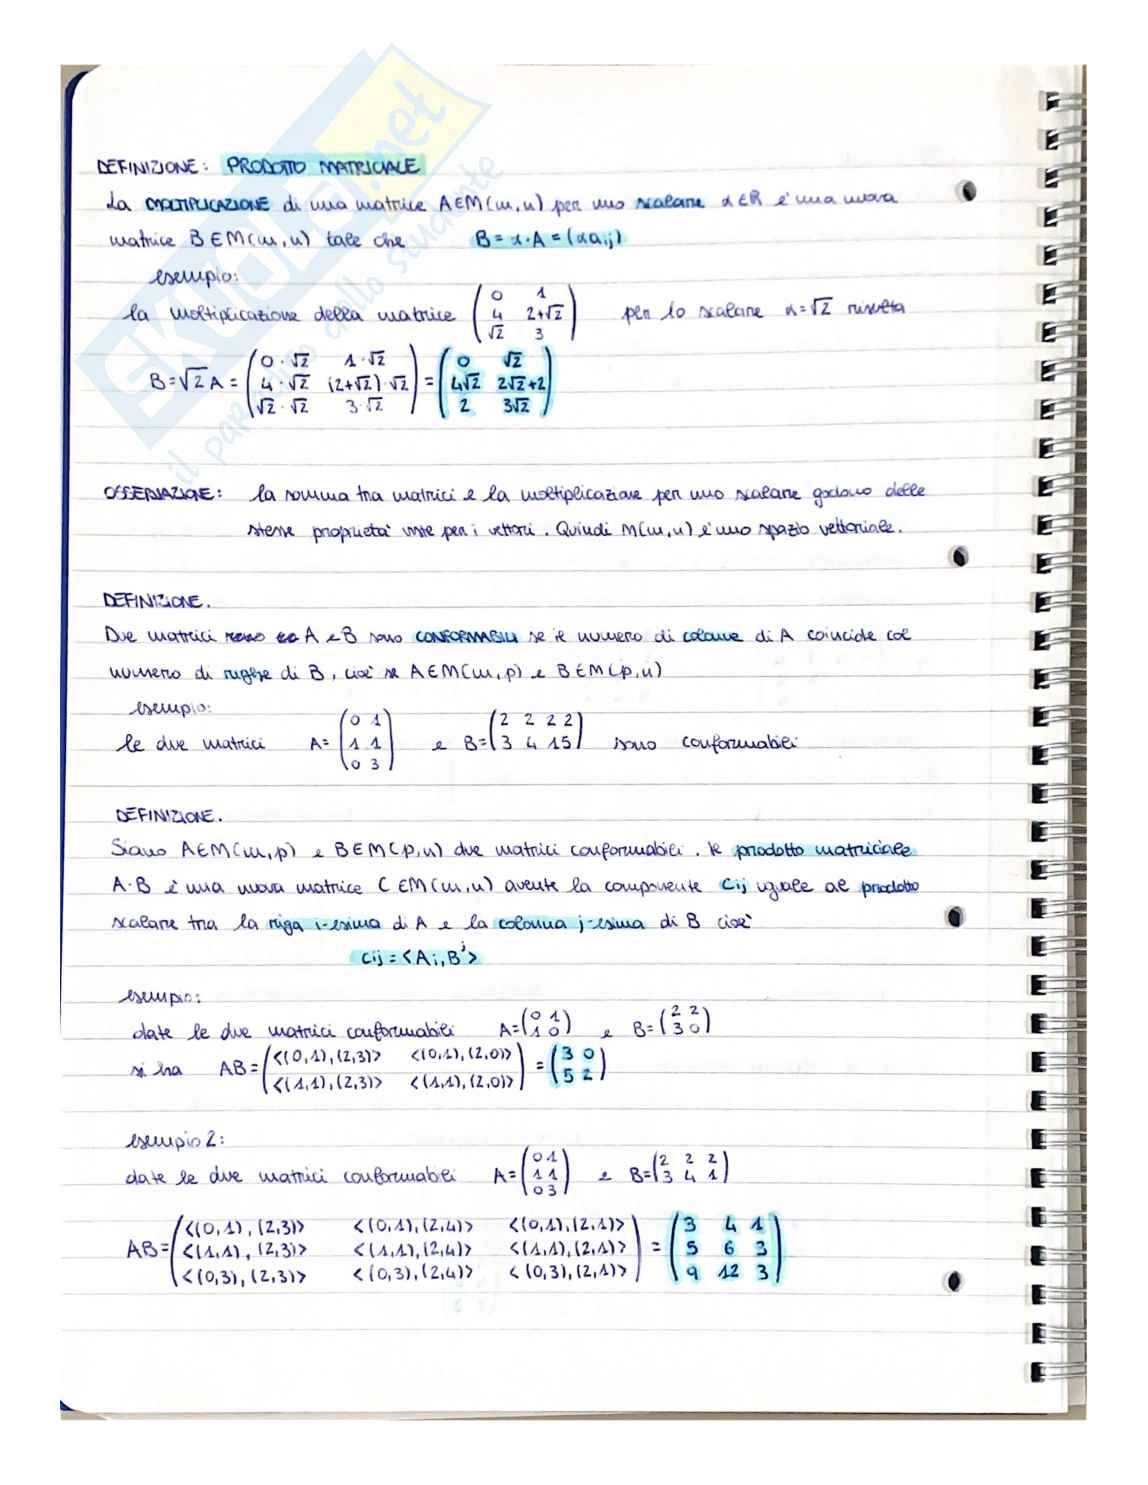 DEFINIZIONE: PRODOTTO MATRICIALE
La MOLTIPLICAZIONE di una matrice A∈M(m,n) per uno scalare α∈R è una nuova
matrice B∈M(m,n) tale che B=α·A=(αaij)
esempio:
la moltiplicazione della matrice (0 1 / 4 2+√2 / √2 3) per lo scalare α=√2 risulta
B=√2A = (0·√2 1·√2 / 4·√2 (2+√2)·√2 / √2·√2 3·√2) = (0 √2 / 4√2 2√2+2 / 2 3√2)
OSSERVAZIONE: la somma tra matrici e la moltiplicazione per uno scalare godono delle
stesse proprietà viste per i vettori. Quindi M(m,n) è uno spazio vettoriale.
DEFINIZIONE.
Due matrici A e B sono CONFORMABILI se il numero di colonne di A coincide col
numero di righe di B, cioè se A∈M(m,p) e B∈M(p,n)
esempio:
le due matrici A=(0 1 / 1 1 / 0 3) e B=(2 2 2 2 / 3 4 1 5) sono conformabili
DEFINIZIONE.
Siano A∈M(m,p) e B∈M(p,n) due matrici conformabili. Il prodotto matriciale
A·B è una nuova matrice C∈M(m,n) avente la componente Cij uguale al prodotto
scalare tra la riga i-esima di A e la colonna j-esima di B cioè
Cij=<Ai,B^j>
esempio:
date le due matrici conformabili A=(0 1 / 1 0) e B=(2 2 / 3 0)
si ha AB=(<(0,1),(2,3)> <(0,1),(2,0)> / <(1,1),(2,3)> <(1,1),(2,0)>) = (3 0 / 5 2)
esempio 2:
date le due matrici conformabili A=(0 1 / 1 1 / 0 3) e B=(2 2 2 / 3 4 1)
AB=(<(0,1),(2,3)> <(0,1),(2,4)> <(0,1),(2,1)> / <(1,1),(2,3)> <(1,1),(2,4)> <(1,1),(2,1)> / <(0,3),(2,3)> <(0,3),(2,4)> <(0,3),(2,1)>) = (3 4 1 / 5 6 3 / 9 12 3)
SKUOLA.net
il paradiso dello studente